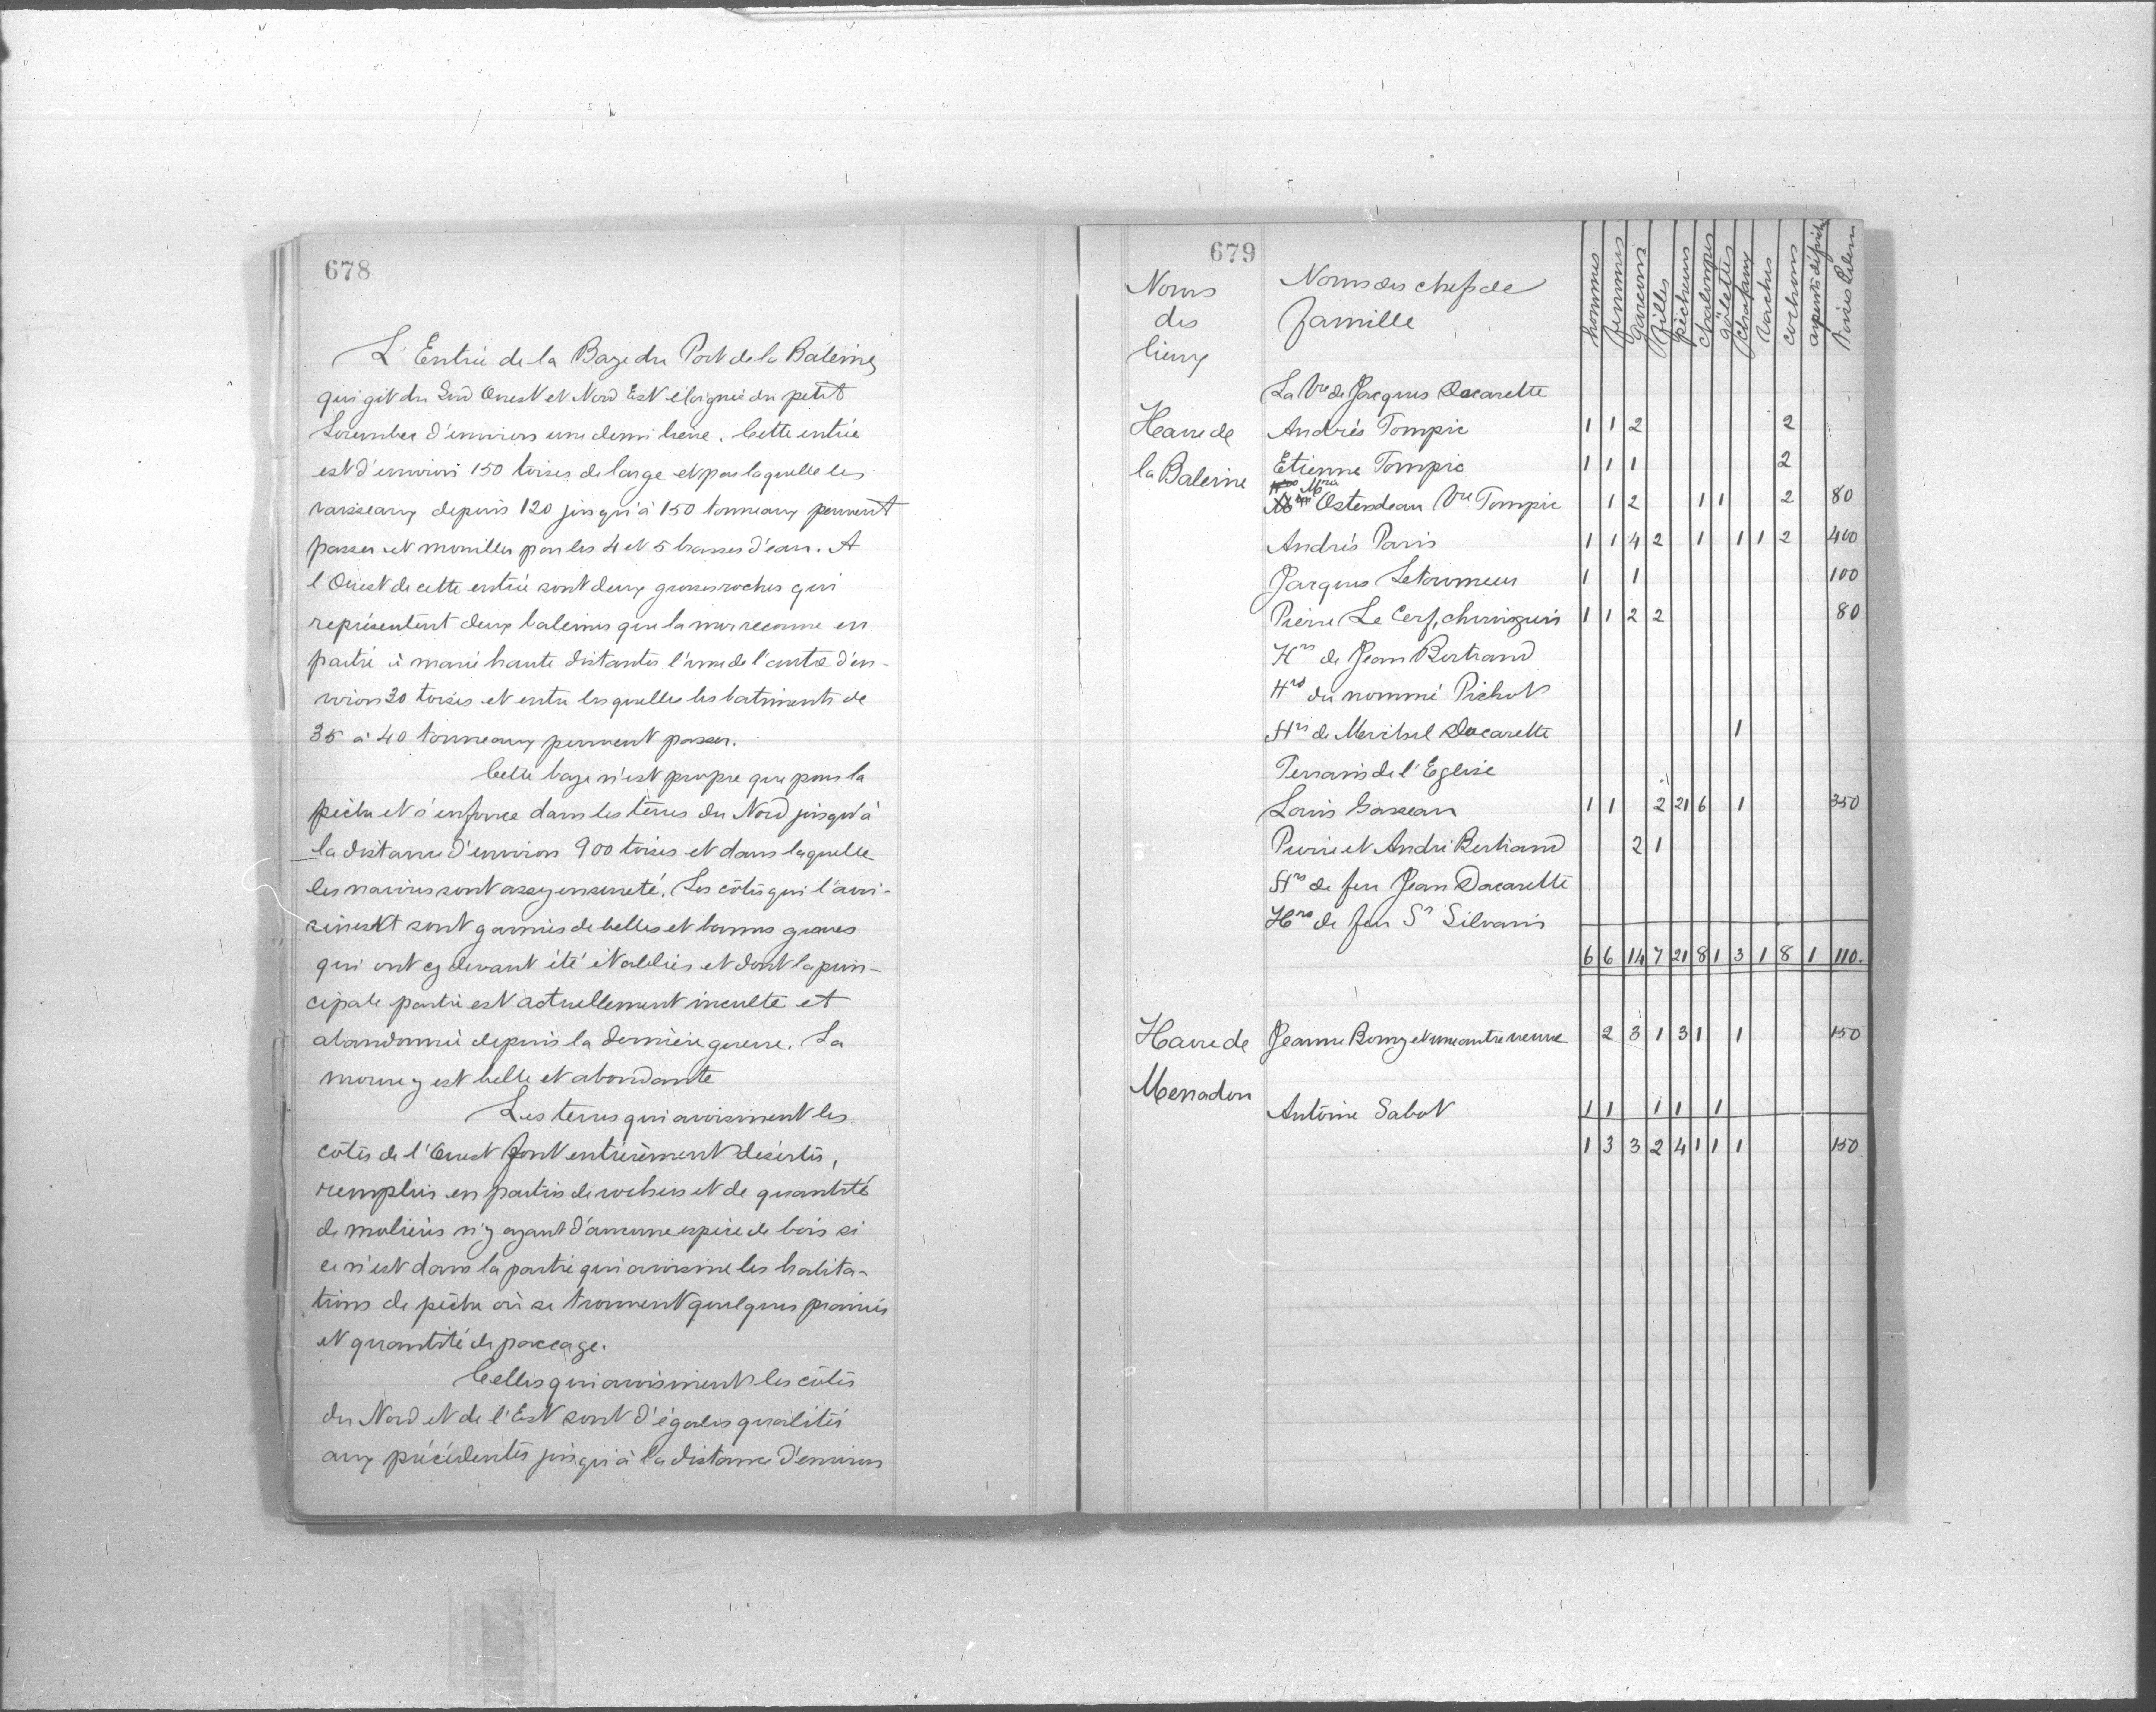 678
L'Entrée de la Baye du Port de la Baleine,
qui git du Sud Ouest et Nord Est éloignée du petit
Lorembec d'environ une demi lieue. Cette entrée
est d'environ 150 toises de large et par laquelle les
vaisseaux depuis 120 jusqu'à 150 tonneaux peuvent
passer et mouiller par les 4 et 5 brasses d'eau. A
l'Ouest de cette entrée sont deux grosses roches qui
représentent deux baleines que la mer recouvre en
partie à marée haute distantes l'une de l'autre d'en-
viron 30 toises et entre lesquelles les batiments de
35 à 40 tonneaux peuvent passer.
Cette baye n'est propre que pour la
pêche et s'enfonce dans les terres du Nord jusqu'à
la distance d'environ 900 toises et dans laquelle
les navires sont assez en sureté. Les côtes qui l'avoi-
sinent sont garnies de belles et bonnes graves
qui ont cy devant été établies et dont la prin-
cipale partie est actuellement inculte et
abandonnée depuis la dernière guerre. La
morue y est belle et abondante
Les terres qui avoisinent les
côtes de l'Ouest sont entièrement désertes,
remplies en partie de rochers et de quantité
de molières n'y ayant d'aucune espèce de bois si
ce n'est dans la partie qui avoisine les habita-
tions de pêche où se trouvent quelques prairies
et quantité de paccage.
Celles qui avoisinent les côtes
du Nord et de l'Est sont d'égales qualités
aux précédentes jusqu'à la distance d'environ
679
Noms des lieux
Noms des chefs de famille
hommes femmes garçons filles pêcheurs chaloupes gölettes vaches cochons
La Vve de Jacques Dacarette
Havre de la Baleine
Andrés Tompic 1 1 2 2
Etienne Tompic 1 1 1 2
Ostendeau Vve Tompic 1 2 1 1 2 80
Andrés Paris 1 1 4 2 1 1 1 2 400
Jacques Letourneur 1 1 100
Pierre Le Cerf, chirurgien 1 1 2 2 80
Hrs de Jean Bertrand
Hrs du nommé Pichot
Hrs de Michel Dacarette 1
Terrain de l'Eglise
Louis Gasseau 1 1 2 21 6 1 350
Pierre et André Bertrand 2 1
Hrs de feu Jean Dacarette
Hrs de feu Sr Silvain
6 6 14 7 21 8 1 3 1 8 1 110.
Havre de Menadou
Jeanne Bomy et une autre veuve 2 3 1 3 1 1 150
Antoine Sabot 1 1 1 1 1
1 3 3 2 4 1 1 1 150